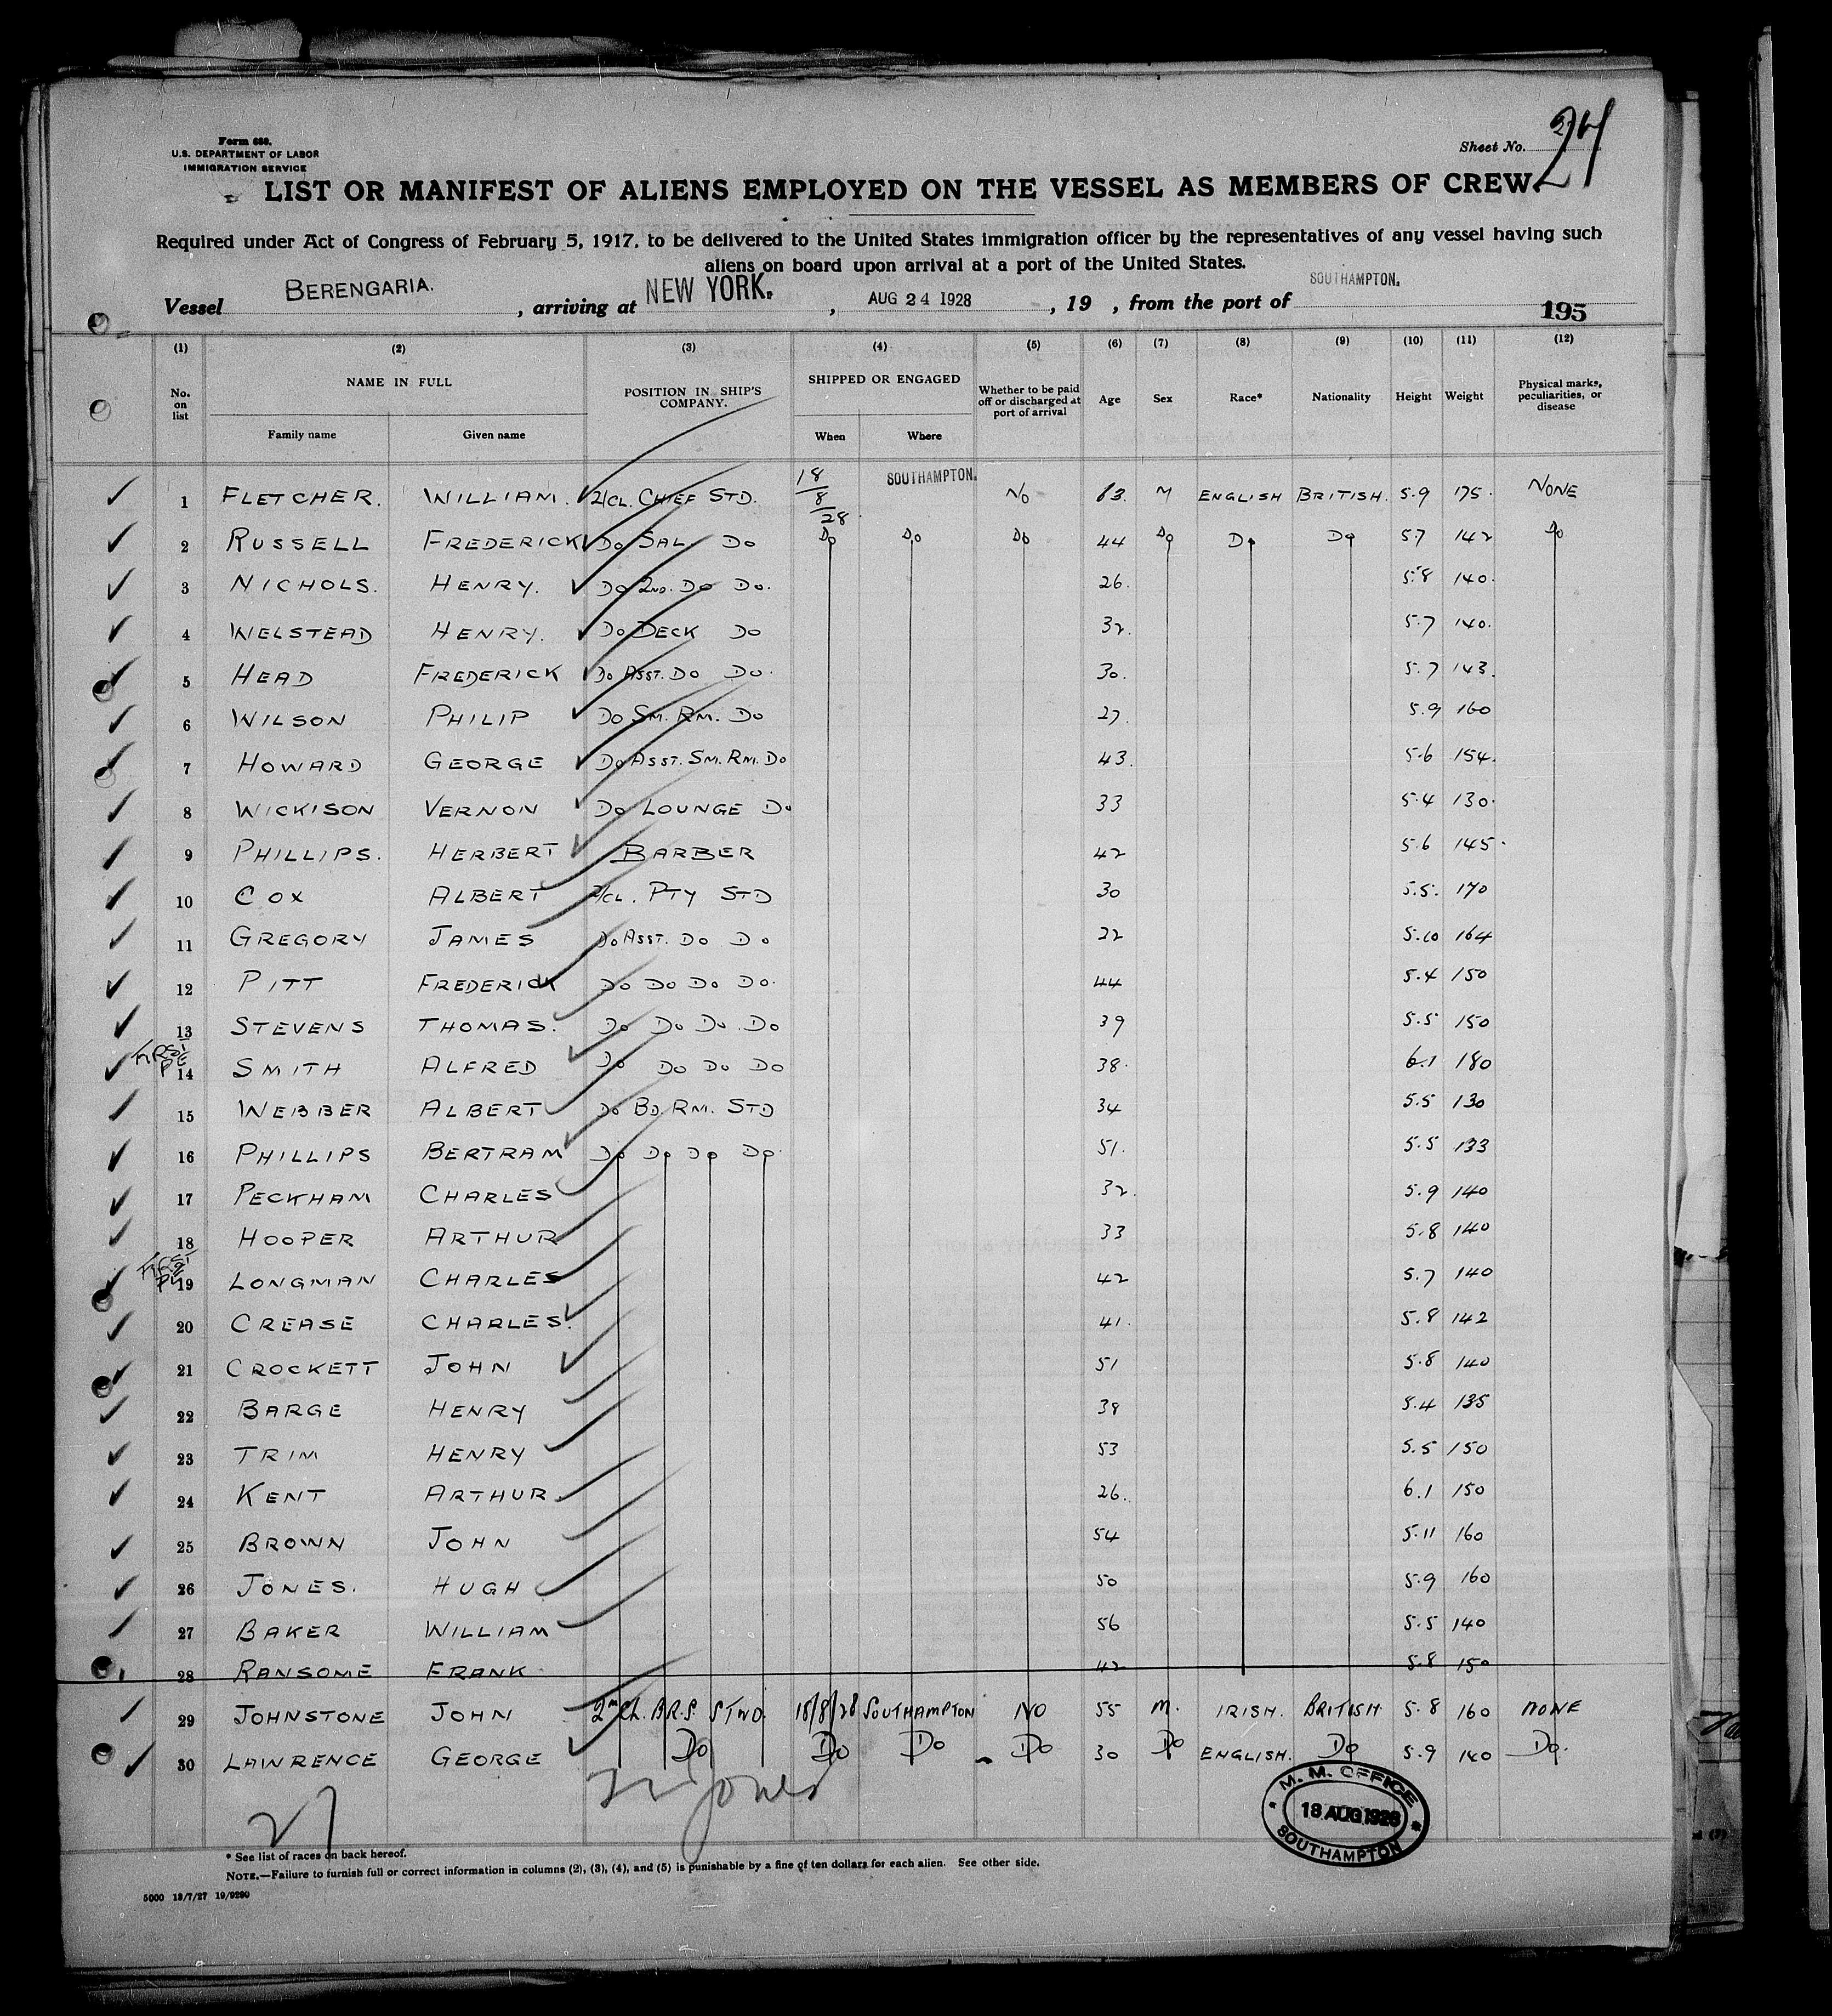 Form 680.
U.S. DEPARTMENT OF LABOR
IMMIGRATION SERVICE
Sheet No. 24
LIST OR MANIFEST OF ALIENS EMPLOYED ON THE VESSEL AS MEMBERS OF CREW
Required under Act of Congress of February 5, 1917, to be delivered to the United States immigration officer by the representatives of any vessel having such
aliens on board upon arrival at a port of the United States.
Vessel BERENGARIA. , arriving at NEW YORK. , AUG 24 1928 , 19 , from the port of SOUTHAMPTON.
195
(1) (2) (3) (4) (5) (6) (7) (8) (9) (10) (11) (12)
No. on list NAME IN FULL POSITION IN SHIP'S COMPANY. SHIPPED OR ENGAGED Whether to be paid off or discharged at port of arrival Age Sex Race* Nationality Height Weight Physical marks, peculiarities, or disease
Family name Given name When Where
1 FLETCHER. WILLIAM. 2/CL. CHIEF STD. 18/8/28 SOUTHAMPTON. NO 63. M ENGLISH BRITISH. 5.9 175. NONE
2 RUSSELL FREDERICK DO SAL DO DO DO DO 44 DO DO DO 5.7 142 DO
3 NICHOLS. HENRY. DO 2ND. DO DO. 26. 5.8 140.
4 WELSTEAD HENRY. DO DECK DO 32. 5.7 140.
5 HEAD FREDERICK DO ASST. DO DO. 30. 5.7 143.
6 WILSON PHILIP DO SM. RM. DO 27. 5.9 160
7 HOWARD GEORGE DO ASST. SM. RM. DO 43. 5.6 154.
8 WICKISON VERNON DO LOUNGE DO 33 5.4 130.
9 PHILLIPS. HERBERT BARBER 42 5.6 145.
10 COX ALBERT 2/CL. PTY STD 30 5.5. 170
11 GREGORY JAMES DO ASST. DO DO 22 5.10 164
12 PITT FREDERICK DO DO DO DO. 44 5.4 150
13 STEVENS THOMAS. DO DO DO DO 39 5.5 150
FIRST
14 SMITH ALFRED DO DO DO DO 38. 6.1 180
15 WEBBER ALBERT DO BD. RM. STD 34 5.5 130
16 PHILLIPS BERTRAM DO DO DO DO. 51. 5.5 133
17 PECKHAM CHARLES 32. 5.9 140
18 HOOPER ARTHUR 33 5.8 140
FIRST
19 LONGMAN CHARLES 42 5.7 140
20 CREASE CHARLES. 41. 5.8 142
21 CROCKETT JOHN 51 5.8 140
22 BARGE HENRY 38 5.4 135
23 TRIM HENRY 53 5.5 150
24 KENT ARTHUR 26. 6.1 150
25 BROWN JOHN 54 5.11 160
26 JONES. HUGH 50 5.9 160
27 BAKER WILLIAM 56 5.5 140
28 RANSOME FRANK 42 5.8 150
29 JOHNSTONE JOHN 2nd CL. B.R.S. STWD. 18/8/28 SOUTHAMPTON NO 55 M. IRISH. BRITISH 5.8 160 NONE
30 LAWRENCE GEORGE DO DO DO DO 30 DO ENGLISH. DO 5.9 140 DO.
27 Jones
M. M. OFFICE
18 AUG 1928
SOUTHAMPTON
* See list of races on back hereof.
NOTE.—Failure to furnish full or correct information in columns (2), (3), (4), and (5) is punishable by a fine of ten dollars for each alien. See other side.
5000 13/7/27 19/9290